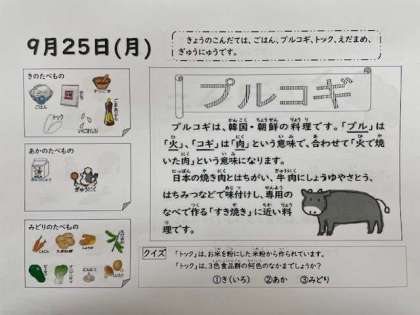 9月25日(月)
きょうのこんだては、ごはん、プルコギ、トック、えだまめ、
ぎゅうにゅうです。
きのたべもの
ごはん
ごまあぶら
あかのたべもの
ぎゅうにく
みどりのたべもの
プルコギ
プルコギは、韓国・朝鮮の料理です。「プル」は
「火」、「コギ」は「肉」という意味で、合わせて「火で焼
いた肉」という意味になります。
日本の焼き肉とはちがい、牛肉にしょうゆやさとう、
はちみつなどで味付けし、専用の
なべで作る「すき焼き」に近い料
理です。
クイズ
「トック」は、お米を粉にした米粉から作られています。
「トック」は、3色食品群の何色のなかまでしょうか?
①き(いろ) ②あか ③みどり